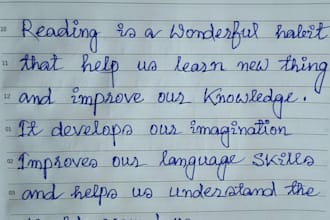 10 Reading is a wonderful habit
11 that help us learn new thing
12 and improve our Knowledge.
01 It develops our imagination
02 Improves our language Skills
03 and helps us understand the